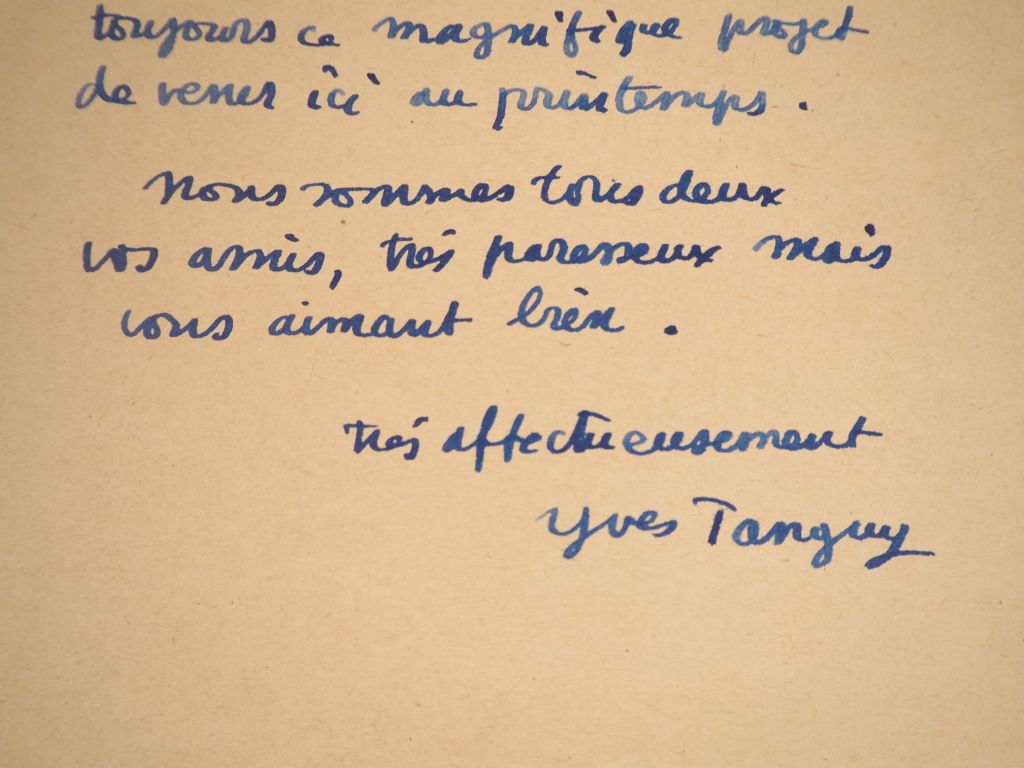 toujours ce magnifique projet
de venir ici au printemps.
Nous sommes tous deux
vos amis, très paresseux mais
vous aimant bien.
très affectueusement
Yves Tanguy